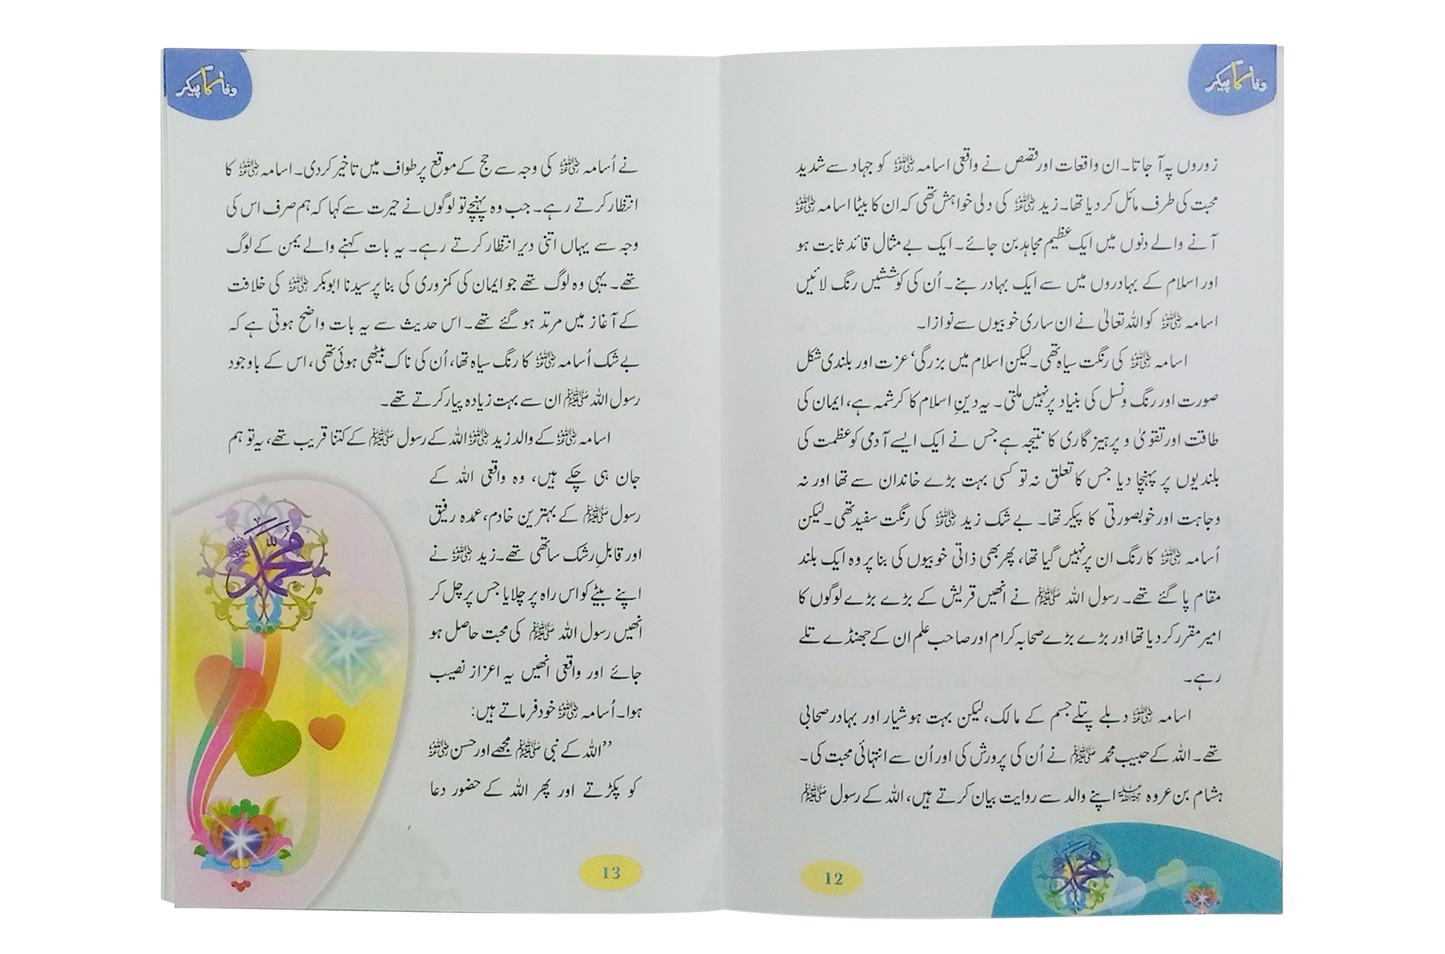 وفا کا پیکر
زوروں پہ آ جاتا۔ ان واقعات اور قصص نے واقعی اسامہ رضی اللہ عنہ کو جہاد سے شدید
محبت کی طرف مائل کر دیا تھا۔ زید رضی اللہ عنہ کی دلی خواہش تھی کہ ان کا بیٹا اسامہ رضی اللہ عنہ
آنے والے دنوں میں ایک عظیم مجاہد بن جائے۔ ایک بے مثال قائد ثابت ہو
اور اسلام کے بہادروں میں سے ایک بہادر بنے۔ اُن کی کوششیں رنگ لائیں
اسامہ رضی اللہ عنہ کو اللہ تعالیٰ نے ان ساری خوبیوں سے نوازا۔
اسامہ رضی اللہ عنہ کی رنگت سیاہ تھی۔ لیکن اسلام میں بزرگی‘ عزت اور بلندی شکل
صورت اور رنگ و نسل کی بنیاد پر نہیں ملتی۔ یہ دینِ اسلام کا کرشمہ ہے، ایمان کی
طاقت اور تقویٰ و پرہیز گاری کا نتیجہ ہے جس نے ایک ایسے آدمی کو عظمت کی
بلندیوں پر پہنچا دیا جس کا تعلق نہ تو کسی بہت بڑے خاندان سے تھا اور نہ
وجاہت اور خوبصورتی کا پیکر تھا۔ بے شک زید رضی اللہ عنہ کی رنگت سفید تھی۔ لیکن
اُسامہ رضی اللہ عنہ کا رنگ ان پر نہیں گیا تھا، پھر بھی ذاتی خوبیوں کی بنا پر وہ ایک بلند
مقام پا گئے تھے۔ رسول اللہ ﷺ نے انھیں قریش کے بڑے بڑے لوگوں کا
امیر مقرر کر دیا تھا اور بڑے بڑے صحابہ کرام اور صاحب علم ان کے جھنڈے تلے
رہے۔
اسامہ رضی اللہ عنہ دبلے پتلے جسم کے مالک، لیکن بہت ہوشیار اور بہادر صحابی
تھے۔ اللہ کے حبیب محمد ﷺ نے اُن کی پرورش کی اور اُن سے انتہائی محبت کی۔
ہشام بن عروہ رحمہ اللہ اپنے والد سے روایت بیان کرتے ہیں، اللہ کے رسول ﷺ
12
وفا کا پیکر
نے اُسامہ رضی اللہ عنہ کی وجہ سے حج کے موقع پر طواف میں تاخیر کر دی۔ اسامہ رضی اللہ عنہ کا
انتظار کرتے رہے۔ جب وہ پہنچے تو لوگوں نے حیرت سے کہا کہ ہم صرف اس کی
وجہ سے یہاں اتنی دیر انتظار کرتے رہے۔ یہ بات کہنے والے یمن کے لوگ
تھے۔ یہی وہ لوگ تھے جو ایمان کی کمزوری کی بنا پر سیدنا ابوبکر رضی اللہ عنہ کی خلافت
کے آغاز میں مرتد ہو گئے تھے۔ اس حدیث سے یہ بات واضح ہوتی ہے کہ
بے شک اُسامہ رضی اللہ عنہ کا رنگ سیاہ تھا، اُن کی ناک بیٹھی ہوئی تھی، اس کے باوجود
رسول اللہ ﷺ ان سے بہت زیادہ پیار کرتے تھے۔
اسامہ رضی اللہ عنہ کے والد زید رضی اللہ عنہ اللہ کے رسول ﷺ کے کتنا قریب تھے، یہ تو ہم
جان ہی چکے ہیں، وہ واقعی اللہ کے
رسول ﷺ کے بہترین خادم، عمدہ رفیق
اور قابلِ رشک ساتھی تھے۔ زید رضی اللہ عنہ نے
اپنے بیٹے کو اس راہ پر چلایا جس پر چل کر
انھیں رسول اللہ ﷺ کی محبت حاصل ہو
جائے اور واقعی انھیں یہ اعزاز نصیب
ہوا۔ اُسامہ رضی اللہ عنہ خود فرماتے ہیں:
’’اللہ کے نبی ﷺ مجھے اور حسن رضی اللہ عنہ
کو پکڑتے اور پھر اللہ کے حضور دعا
محمد
13
محمد